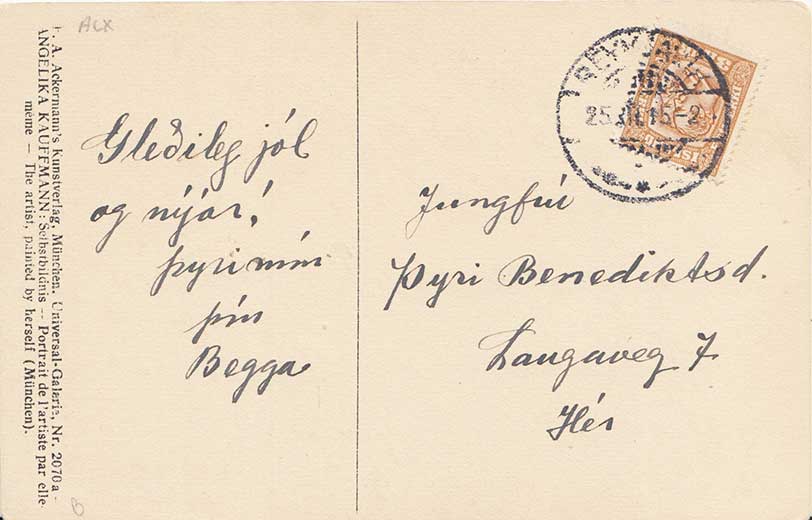 ACX
F. A. Ackermann's Kunstverlag, München. Universal-Galerie, Nr. 2070a -
ANGELIKA KAUFFMANN, Selbstbildnis -- Portrait de l'artiste par elle-
même — The artist, painted by herself (München).
Gleðileg jól
og nýár!
þyri mín
þín
Begga
B
REYKJAVÍK
25.XII.15-2
ÍSLAND
Jungfrú
Þyri Benediktsd.
Laugaveg 7
Hér